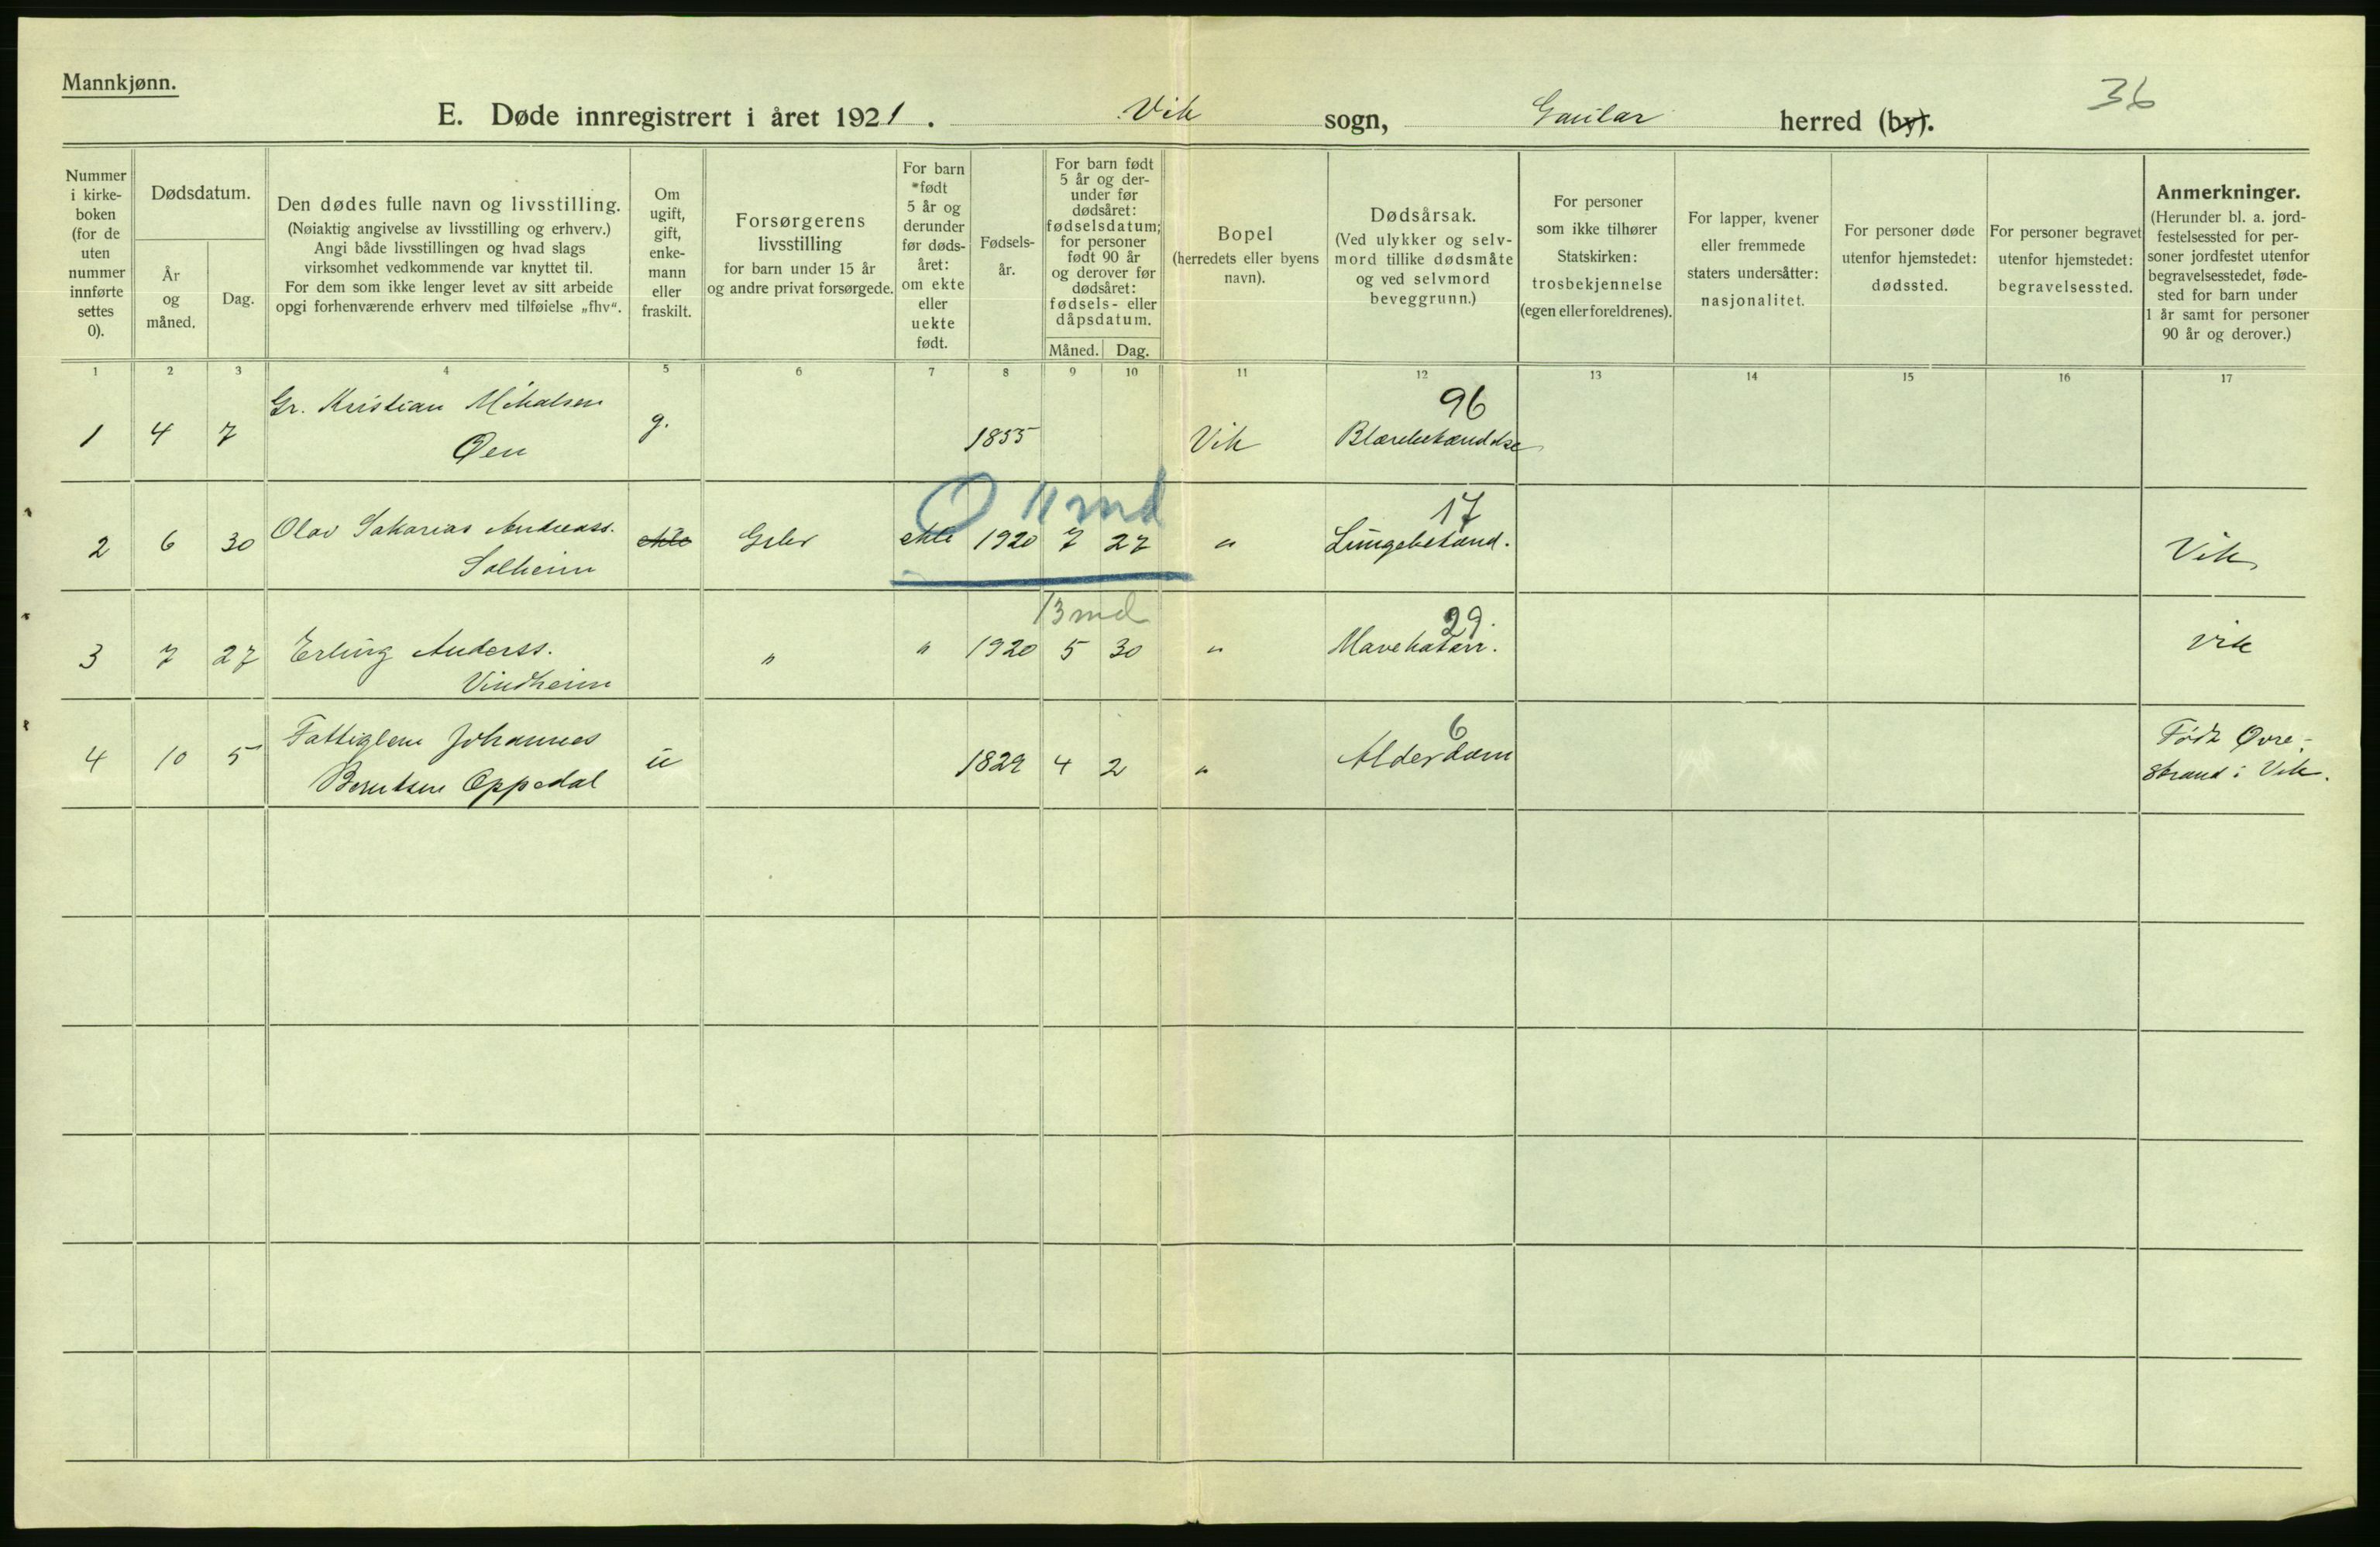 Mannkjønn.
36
E. Døde innregistrert i året 1921. Vik sogn, Gaular herred (by).
Nummer
i kirke-
boken
(for de
uten
nummer
innførte
settes
0).
Dødsdatum.
År
og
måned.
Dag.
Den dødes fulle navn og livsstilling.
(Nøiaktig angivelse av livsstilling og erhverv.)
Angi både livsstillingen og hvad slags
virksomhet vedkommende var knyttet til.
For dem som ikke lenger levet av sitt arbeide
opgi forhenværende erhverv med tilføielse „fhv“.
Om
ugift,
gift,
enke-
mann
eller
fraskilt.
Forsørgerens
livsstilling
for barn under 15 år
og andre privat forsørgede.
For barn
*født
5 år og
derunder
før døds-
året:
om ekte
eller
uekte
født.
Fødsels-
år.
For barn født
5 år og der-
under før
dødsåret:
fødselsdatum;
for personer
født 90 år
og derover før
dødsåret:
fødsels- eller
dåpsdatum.
Måned. Dag.
Bopel
(herredets eller byens
navn).
Dødsårsak.
(Ved ulykker og selv-
mord tillike dødsmåte
og ved selvmord
beveggrunn.)
For personer
som ikke tilhører
Statskirken:
trosbekjennelse
(egen eller foreldrenes).
For lapper, kvener
eller fremmede
staters undersåtter:
nasjonalitet.
For personer døde
utenfor hjemstedet:
dødssted.
For personer begravet
utenfor hjemstedet:
begravelsessted.
Anmerkninger.
(Herunder bl. a. jord-
festelsessted for per-
soner jordfestet utenfor
begravelsesstedet, føde-
sted for barn under
1 år samt for personer
90 år og derover.)
1 2 3 4 5 6 7 8 9 10 11 12 13 14 15 16 17
Gr. Kristian Mikalsen 96
1 4 7 Øen g. 1855 Vik Blærebetændelse
0 11 md 17
2 6 30 Olav Sakarias Andreass. ekte Gbr ekte 1920 7 27 " Lungebetænd. Vik
Solheim
13 md 29.
3 7 27 Erling Anderss. " " 1920 5 30 " Mavekatarr. Vik
Vindheim
Fattiglem Johannes 6 Født Øvre-
4 10 5 Berentsen Oppedal u 1829 4 2 " Alderdom strand i Vik.